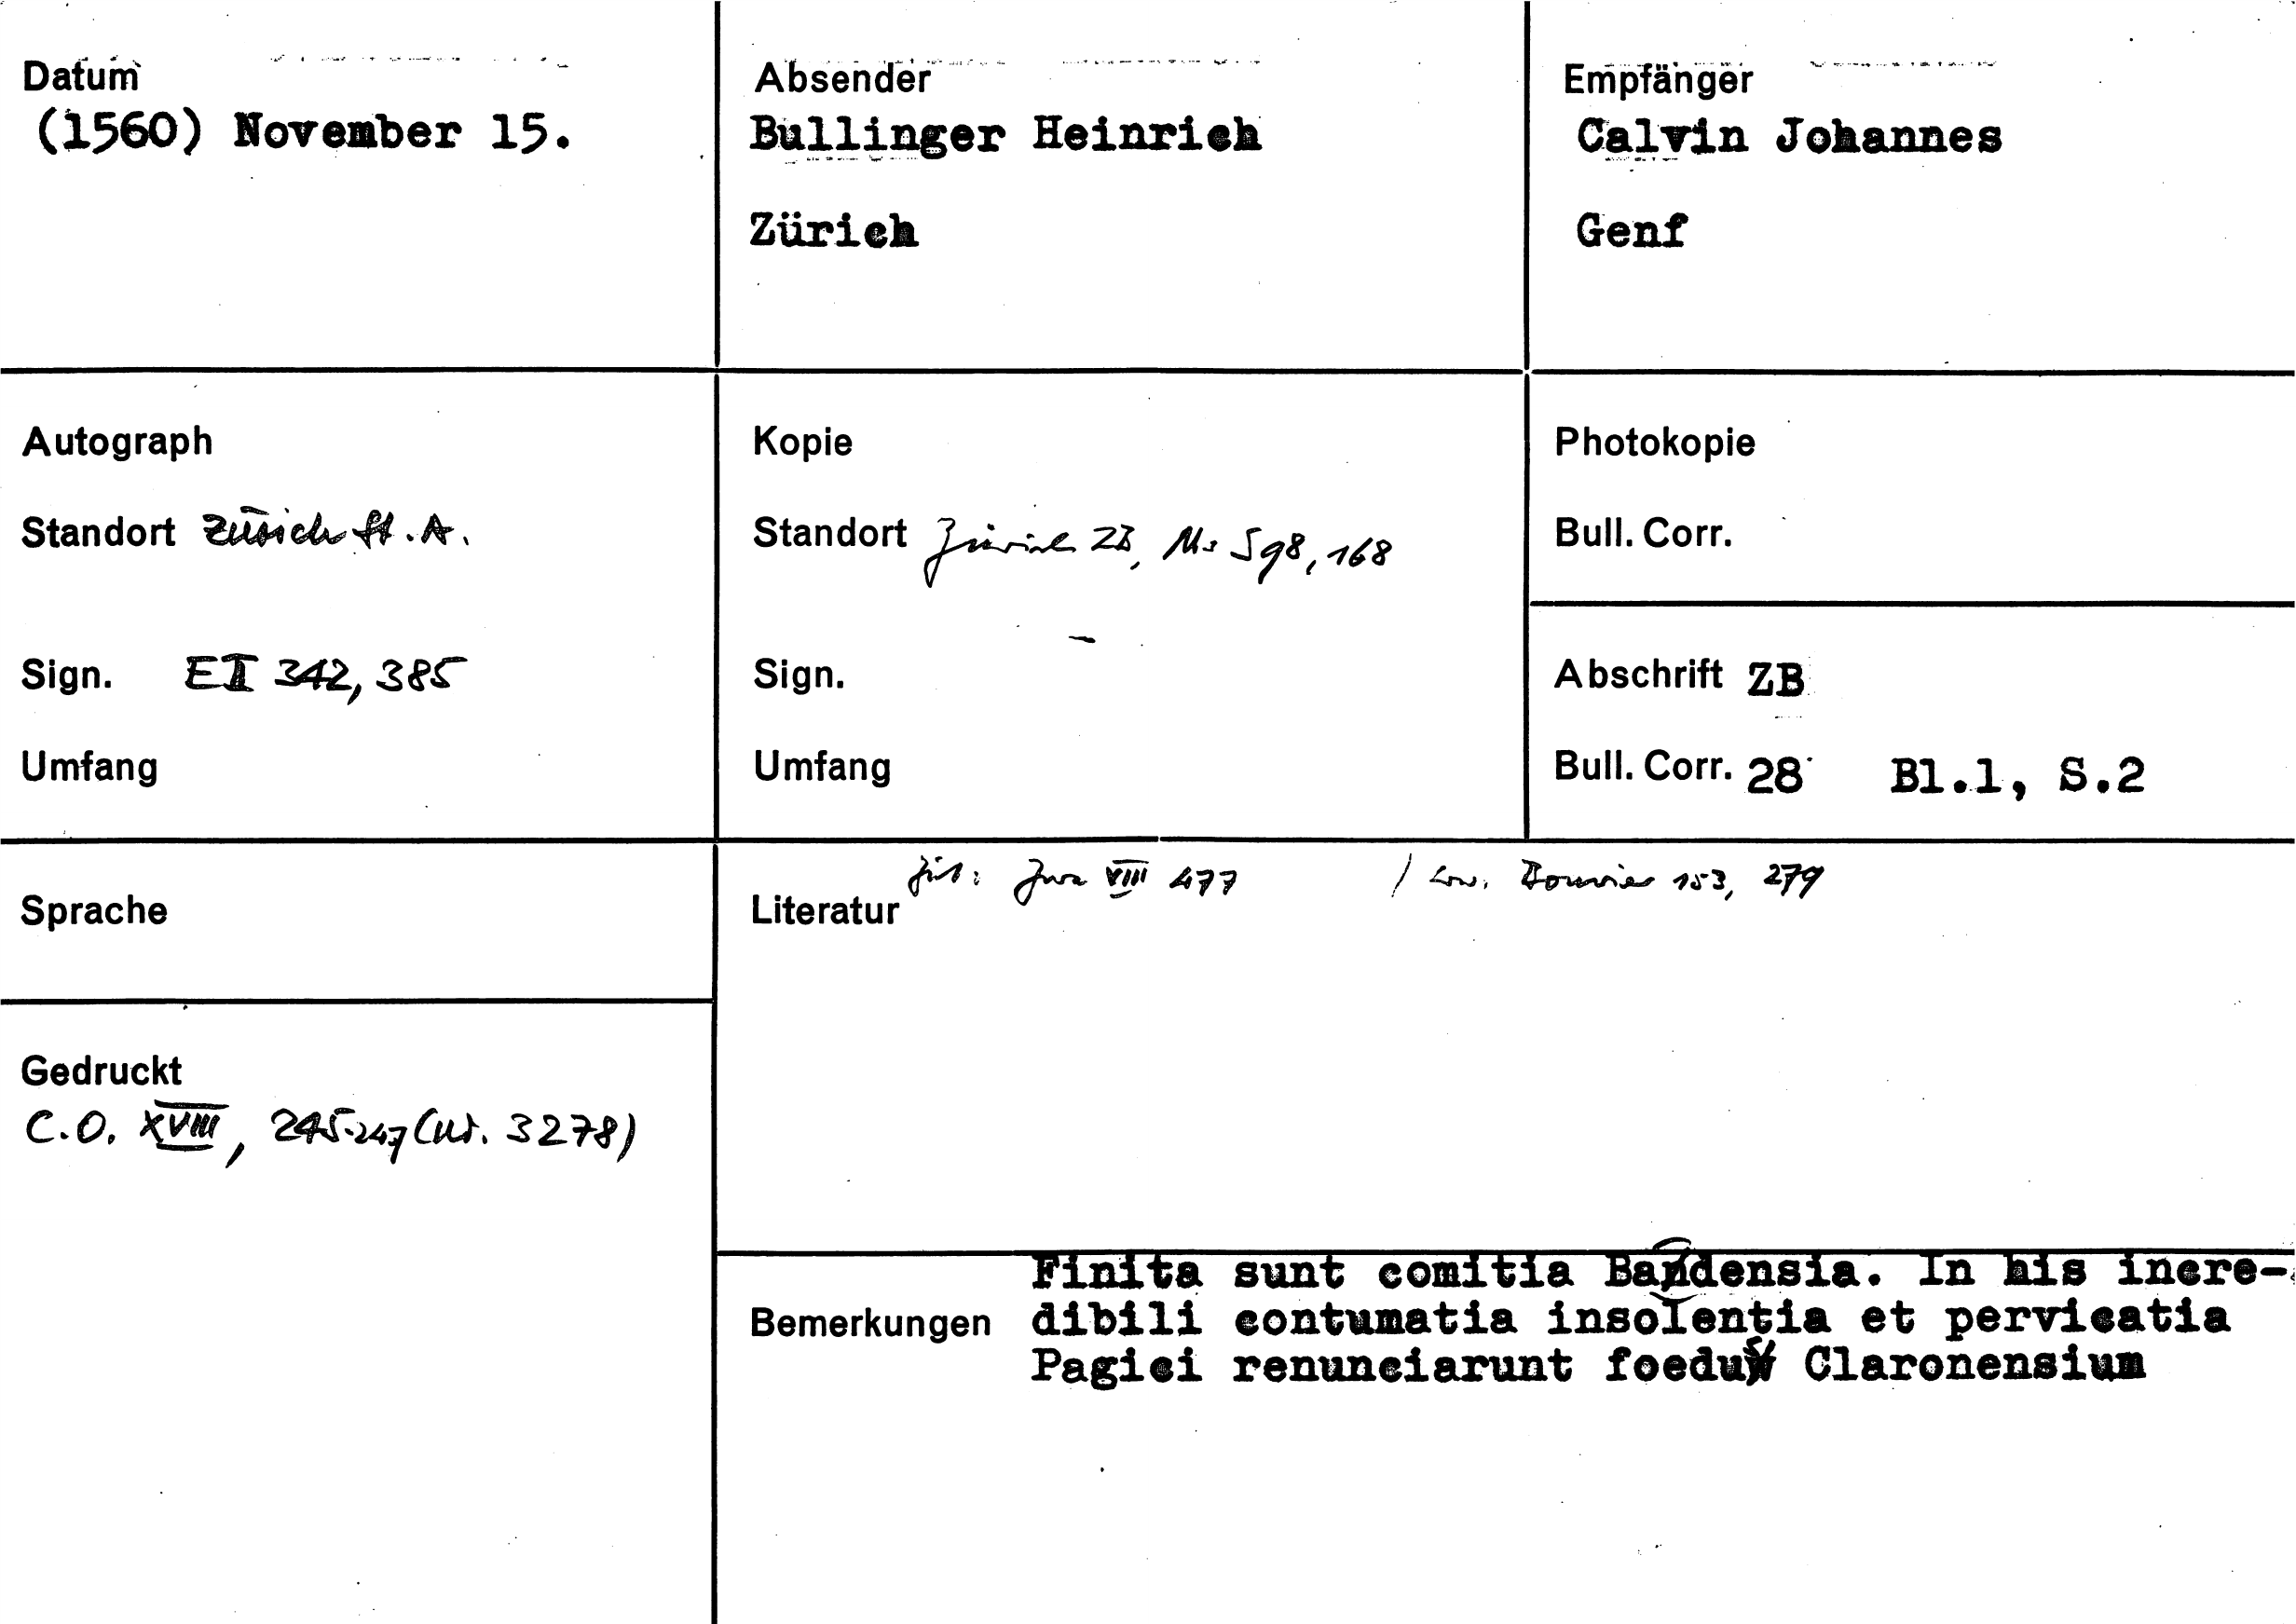 Datum
(1560) November 15.
Absender
Bullinger Heinrich
Zürich
Empfänger
Calvin Johannes
Genf
Autograph
Standort Zürich St.A.
Sign. EII 342, 385
Umfang
Kopie
Standort Zürich ZB, Ms S98, 168
Sign. -
Umfang
Photokopie
Bull. Corr.
Abschrift ZB
Bull. Corr. 28 Bl.1, S.2
Sprache
Gedruckt
C.O. XVIII, 245-247 (Nr. 3278)
Literatur Zit: Jura VIII 477 / Bouvier 153, 279
Bemerkungen
Finita sunt comitia Badensia. In his incre-
dibili contumatia insolentia et pervicatia
Pagici renunciarunt foedus Claronensium